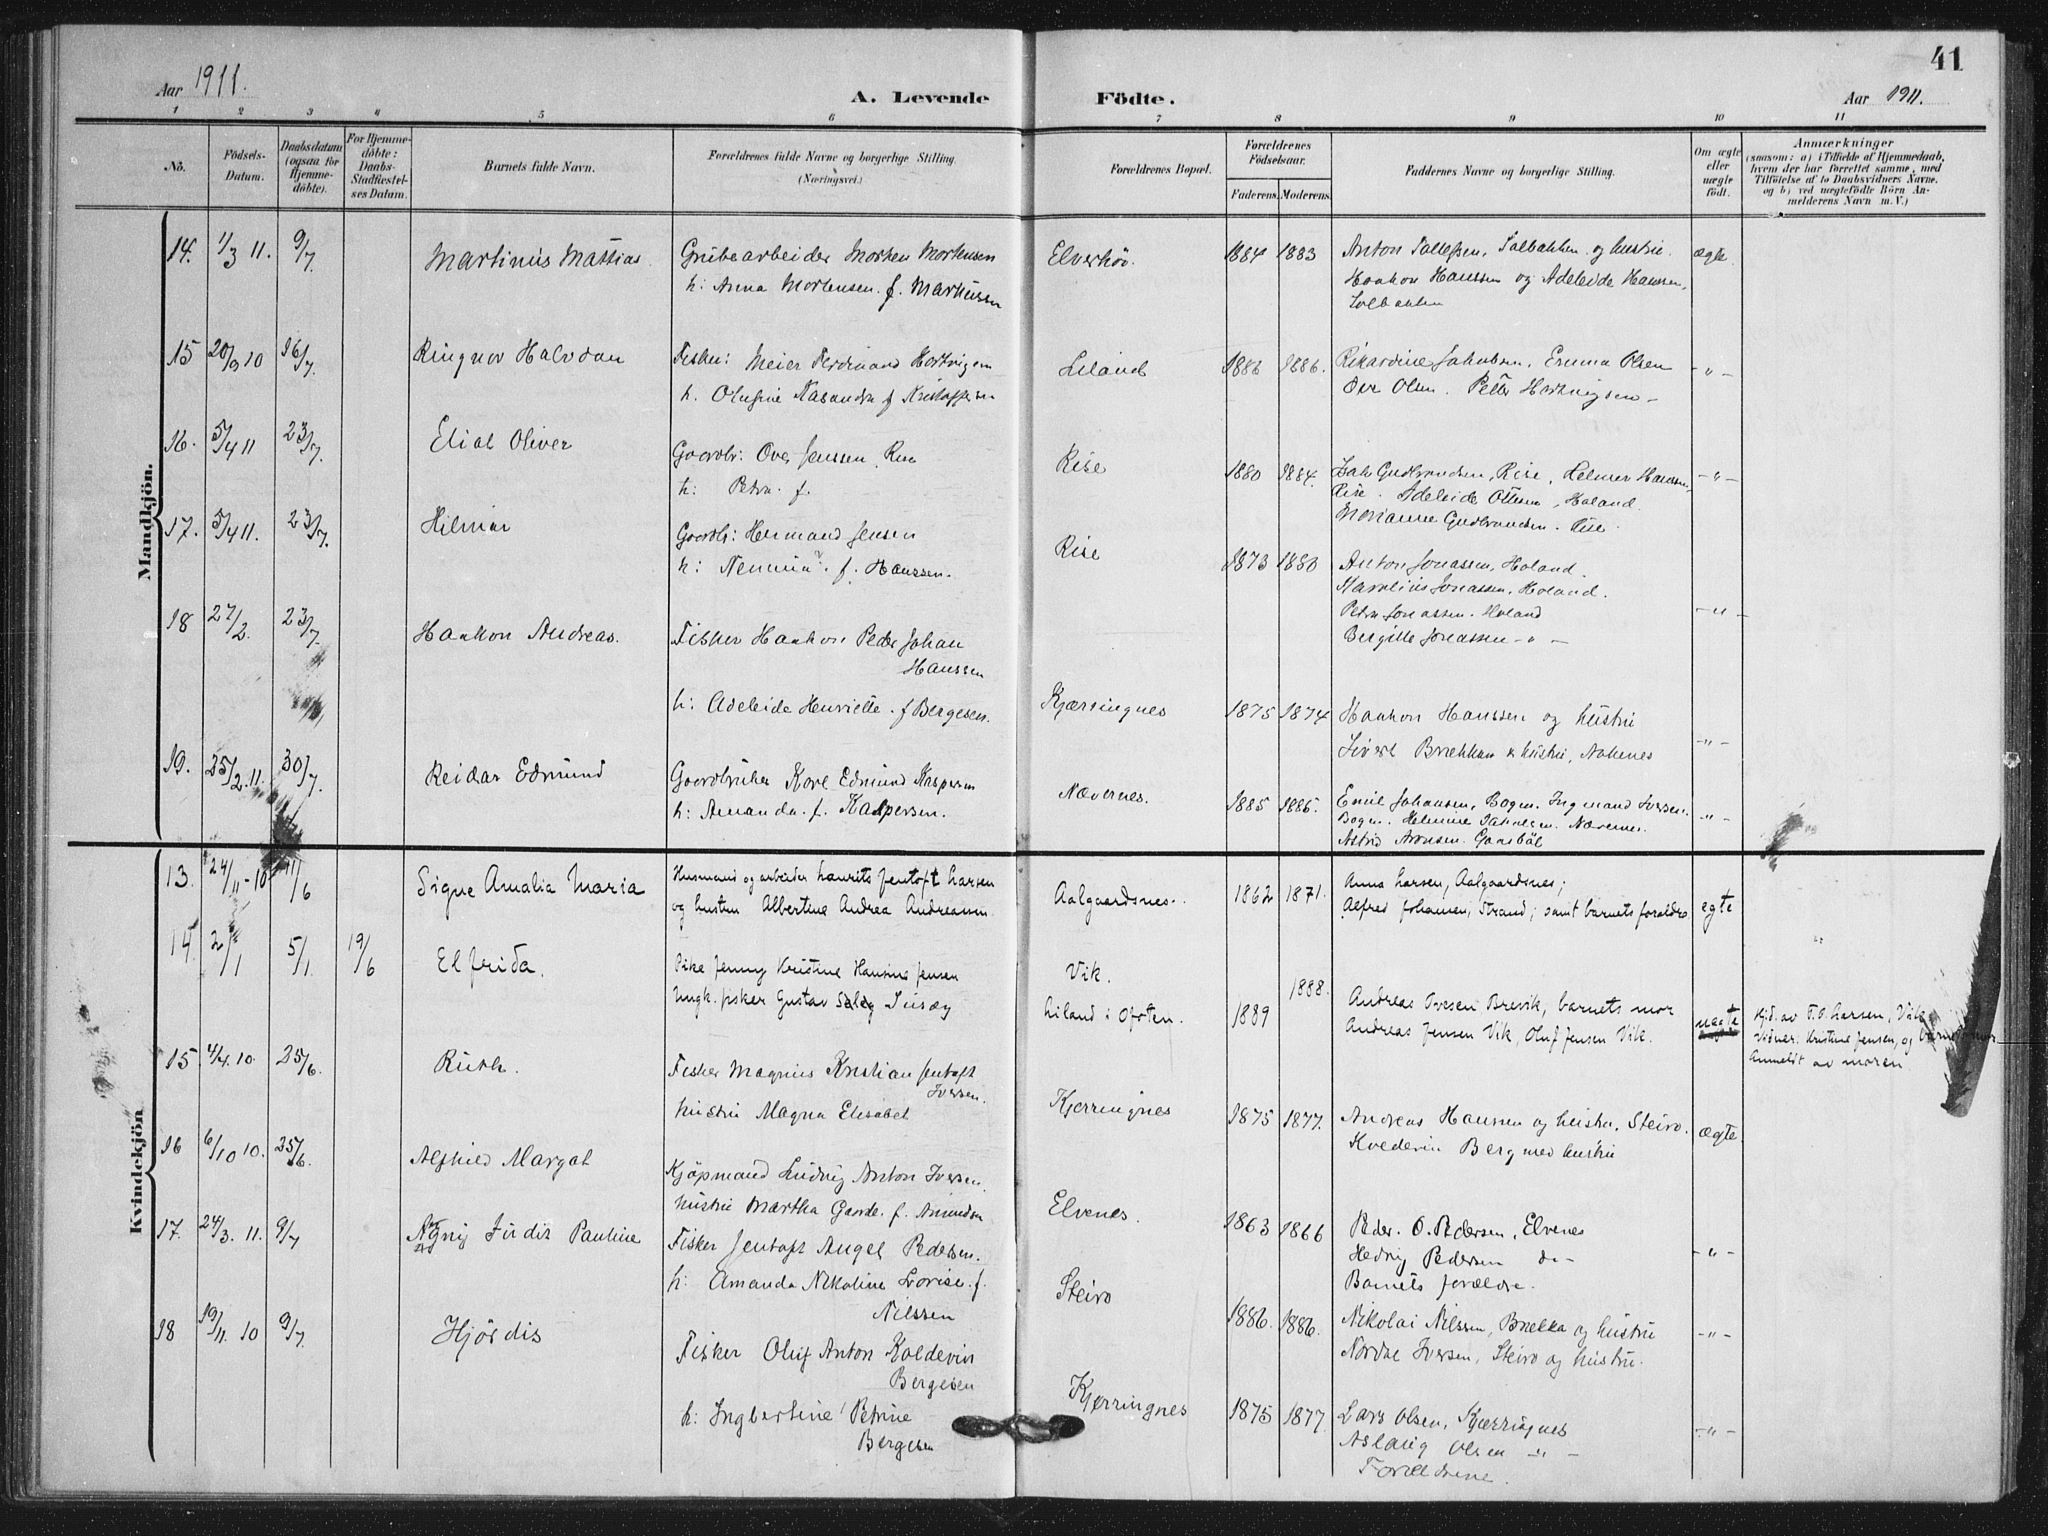 41
Aar 1911.
A. Levende
Födte.
Aar 1911.
1 2 3 4 5 6 7 8 9 10 11
No.
Födsels-Datum.
Daabsdatum (ogsaa for Hjemme-döbte).
For Hjemme-döbte: Daabs-Stadfæstel-ses Datum.
Barnets fulde Navn.
Forældrenes fulde Navne og borgerlige Stilling.
(Næringsvei.)
Forældrenes Bopæl.
Forældrenes Födselsaar.
Faderens. Moderens.
Faddernes Navne og borgerlige Stilling.
Om ægte eller uægte födt.
Anmærkninger
(saasom: a) i Tilfælde af Hjemmedaab,
hvem der har forrettet samme, med
Tilföielse af to Daabsvidners Navne.
og b) ved uægtefödte Börn An-
melderens Navn m. V.)
Mandkjön.
14. 1/3 11. 9/7. Martinus Mattias. Grubearbeider Morten Mortensen Elverhöi. 1884 1883 Anton Tollefsen, Solbakken og hustru. ægte.
h: Anna Mortensen. f. Markussen Haakon Hanssen og Adeleide Hanssen,
Solbakken
15 20/9 10 16/7. Ringnor Halvdan Fisker: Meier Ferdinand Hartvigsen Liland 1886 1886. Rikardine Jakobsen, Emma Olsen - " -
h. Olufine Kasandra f Kristoffersen Ove Olsen. Petter Hartvigsen -
16. 5/4 11 23/7. Elias Oliver Gaardbr: Over Jenssen, Rise Rise 1880 1884. Gudbrandsen, Rise, Helmer Hanssen, - " -
h: Petra f. Rise. Adeleide Ottesen, Holand.
Marianne Gudbrandsen. Rise.
17. 5/4 11. 23/7. Hilmar Gaardbr: Hermand Jensen Rise 1873 1880 Anton Jonassen, Holand.
h: Nennia f. Hanssen. Karolius Jonassen, Holand.
Petra Jonassen. Holand - " -
Bergitte Jonassen - " -
18 27/2. 23/7. Haakon Andreas. Fisker Haakon Peder Johan
Hanssen
h: Adeleide Henriette. f Bergesen. Kjærringnes 1875 1874 Haakon Hanssen og hustru
Sivert Brækkan & hustru, Aakenes - " -
19. 25/2. 11. 30/7. Reidar Edmund Gaardbruker Karl Edmund Kaspersen Nævernes. 1885 1885. Emil Johansen, Bogen. Ingmand Iversen. - " -
h: Amanda. f. Kaspersen. Bogen. Helmine Jakobsen. Nævernes.
Astrid Aronsen. Gaasböl
Kvindekjön
13. 24/11-10 11/6 Signe Amalia Maria Husmand og arbeider Laurits Jentoft Larsen Aalgaardsnes. 1862 1871. Anna Larsen, Aalgaardsnes;
og hustru Albertine Andrea Andreassen. Alfred Johansen, Strand; samt barnets foreldre egte
14. 2/1 5/1. 19/6 Elfrida. Pike Jenny Kristine Hansine Jensen Vik. 1888.
Ungk. fisker Gustav Selig Liland i Ofoten. 1889 Andreas Ivesen Brevik, barnets mor
Andreas Jensen Vik, Oluf Jensen Vik. uegte Hjd. av T. O. Larsen, Vik.
Vidner. Kristine Jensen, og barnets mor
Anmeldt av moren
15 4/4. 10. 25/6. Ruth. Fisker Magnus Kristian Jentoft
Iversen.
hustru Magna Elisabet Kjerringnes 1875 1877. Andreas Hanssen og hustru, Steiro. ægte.
Kvedevin Berg med hustru
16 6/10 10. 25/6. Alfhild Margot Kjöpmand Ludvig Anton Iversen.
hustru Martha Gaarde. f. Amundsen Elvenes. 1863 1866 Peder. O. Pedersen, Elvenes
Hedvig Pedersen do - - " -
Barnets forældre.
17. 24/3. 11. 9/7 Agny Judit Pauline Fisker Jentoft Angel Pedersen.
h: Amanda Nikoline Lovise. f.
Nilssen Steiro 1886. 1886. Nikolai Nilssen, Brekka og hustru - " -
Nordal Iversen, Steiro og hustru.
18 19/11. 10 9/7. Hjördis Fisker Oluf Anton Koldevin
Bergesen
h: Ingbertine Petrine
Bergesen Kjerringnes 1875 1877 Lars Olsen, Kjærringnes - " -
Aslaug Olsen - " -
Foreldrene.